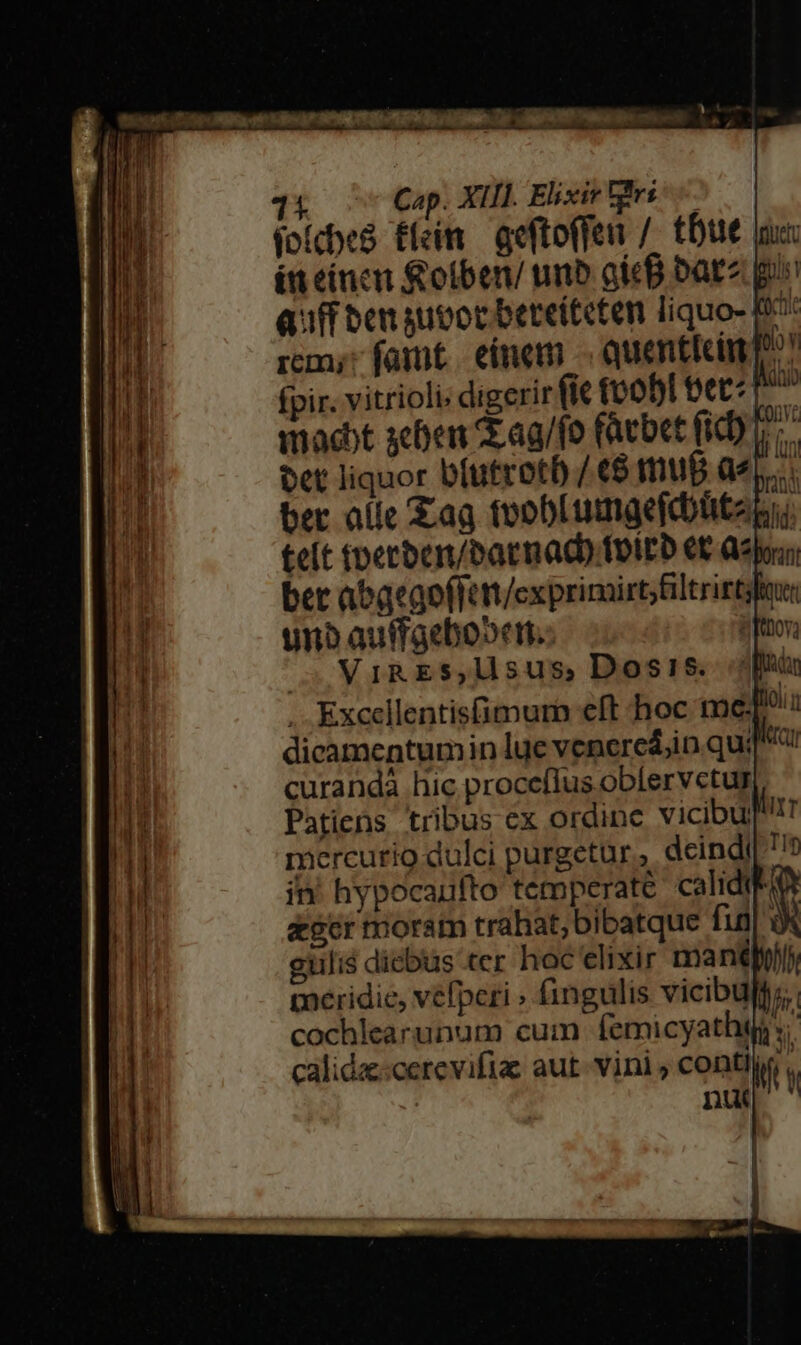 Cap. XIII. Elixir ♀ri
ſolches klein geſtoſſen / thue
in einen Kolben/ und gieß dar⸗
auff den zuvor bereiteten liquo-
rem, ſamt einem quentlein
ſpir. vitrioli; digerir ſie wohl ver⸗
macht zehen Tag/ſo färbet ſich
der liquor blutroth / es muß a⸗
ber alle Tag wohl umgeſchüt⸗
telt werden/darnach wird er a⸗
ber abgegoſſen/exprimirt, filtrirt,
und auffgehoben.
VIRES, Usus, Dosis.
Excellentisſimum eſt hoc me-
dicamentum in lue venereâ, in qua
curandâ hic proceſſus obſervetur.
Patiens tribus ex ordine vicibus
mercurio dulci purgetur, deinde
in hypocauſto temperatè calido
æger moram trahat, bibatque ſin
gulis diebus ter hoc elixir mane
meridie, veſperi, ſingulis vicibus
cochlear unum cum ſemicyatho
calidæ cereviſiæ aut vini, conti
nue